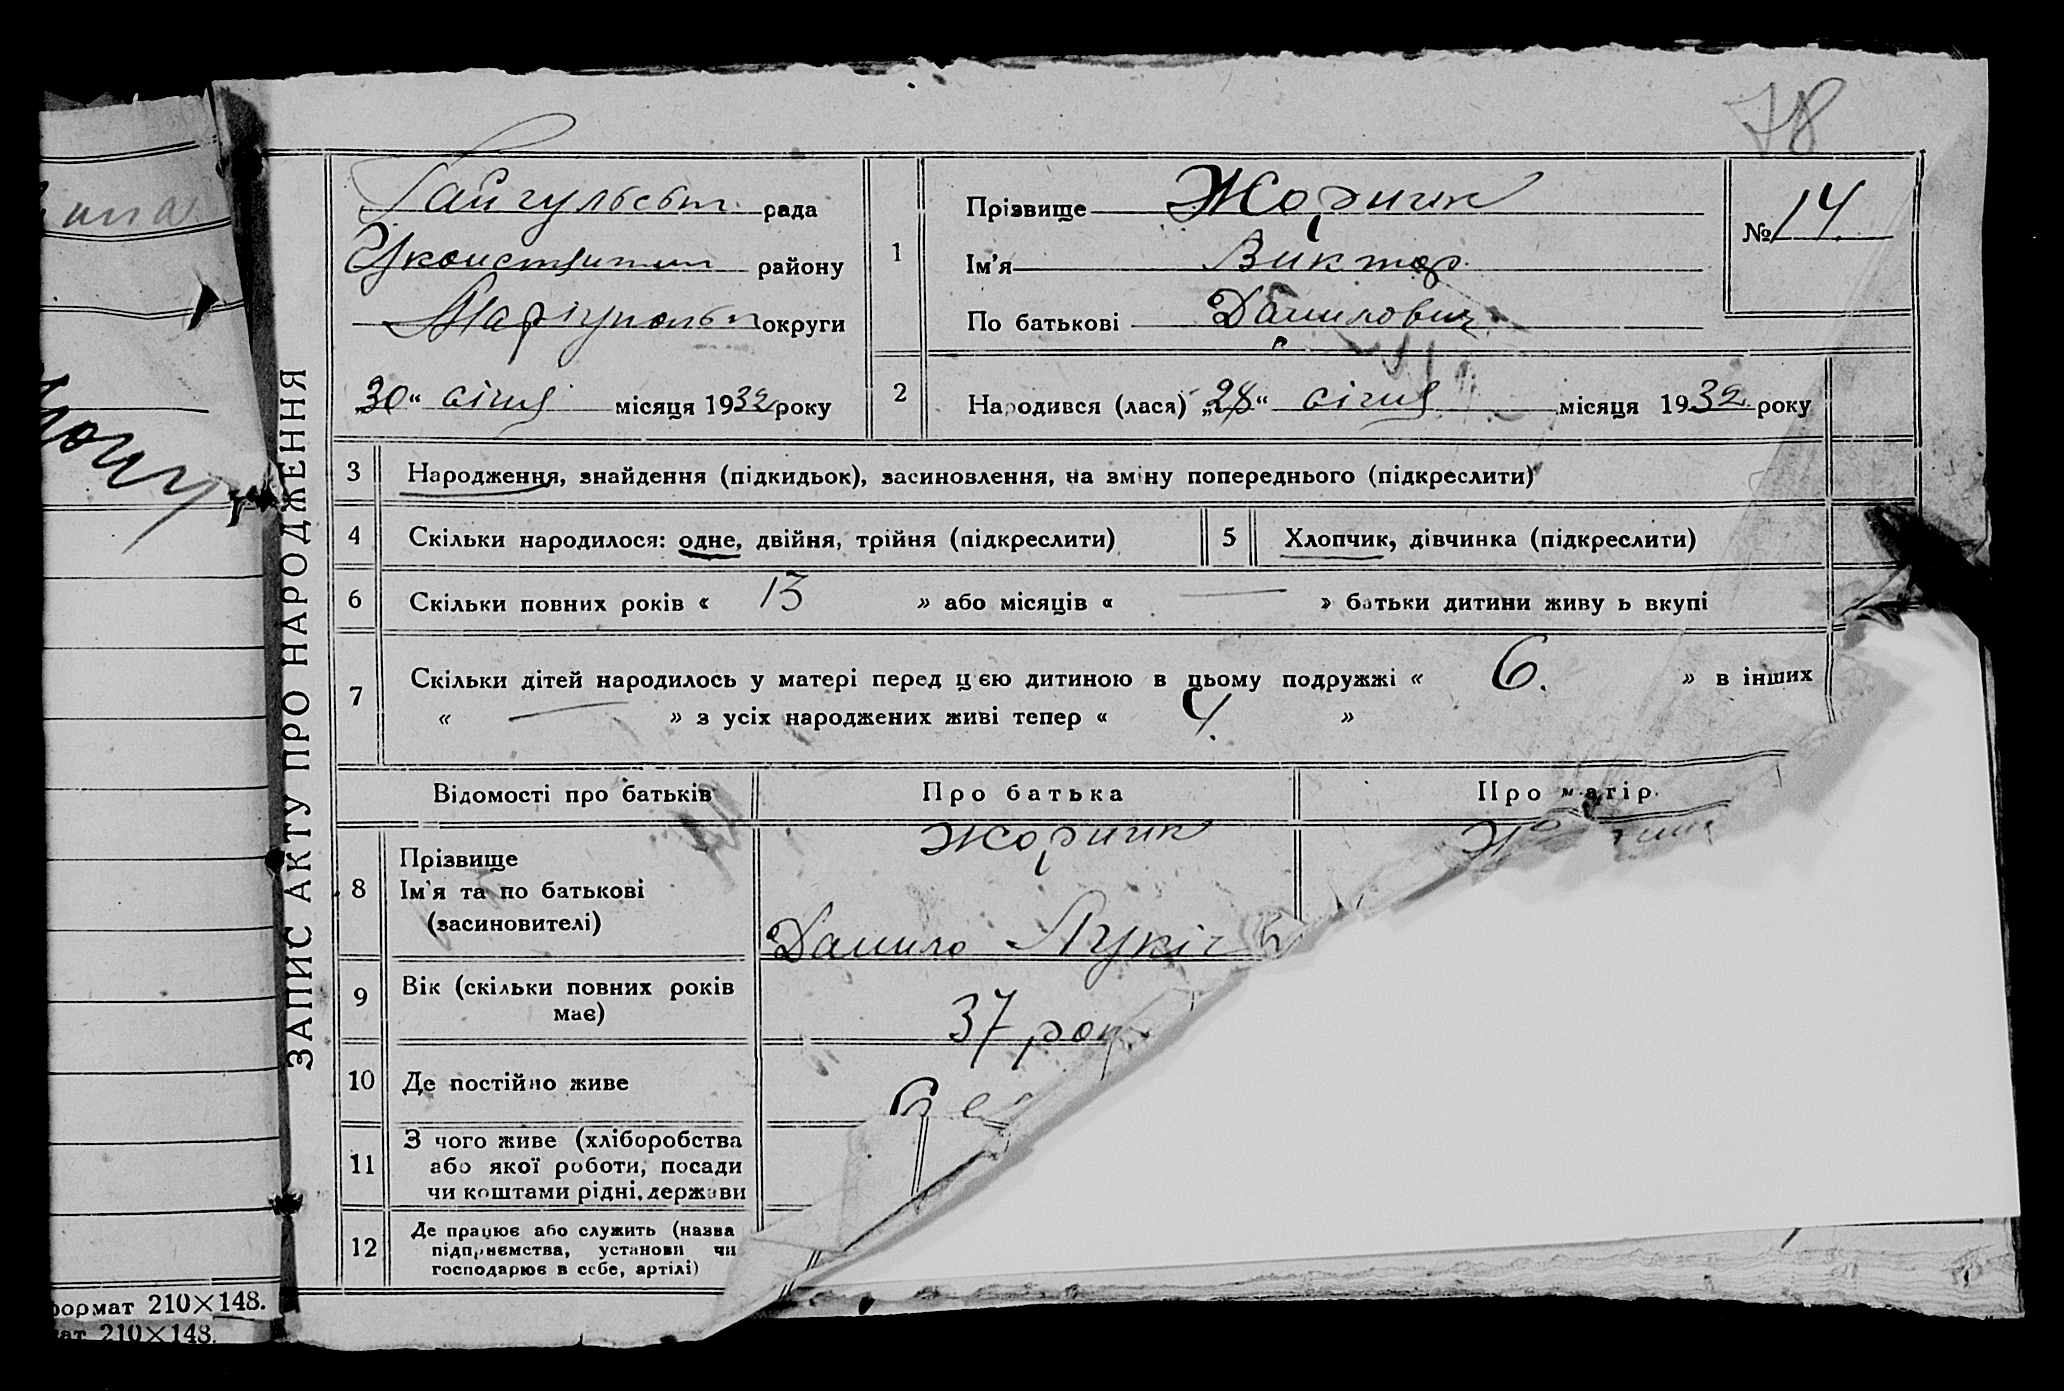 78
рада
району
округи
„30“ січня місяця 1932 року
1
Прізвище Жорник
Ім’я Виктор
По батькові Данилович
№ 14
2
Народився (лася) „28“ січня місяця 1932 року
ЗАПИС АКТУ ПРО НАРОДЖЕННЯ
3 Народження, знайдення (підкидьок), засиновлення, на зміну попереднього (підкреслити)
4 Скільки народилося: одне, двійня, трійня (підкреслити)
5 Хлопчик, дівчинка (підкреслити)
6 Скільки повних років « 13 » або місяців « — » батьки дитини живу ь вкупі
7 Скільки дітей народилось у матері перед цією дитиною в цьому подружжі « 6. » в інших
« — » з усіх народжених живі тепер « 4. »
Відомості про батьків
Про батька
Про матір
8
Прізвище
Ім’я та по батькові
(засиновителі)
Жорник
Данило Лукіч
9
Вік (скільки повних років
має)
37 рок
10 Де постійно живе
11
З чого живе (хліборобства
або якої роботи, посади
чи коштами рідні, держави
12
Де працює або служить (назва
підприємства, установи чи
господарює в себе, артілі)
формат 210×148.
210×148.